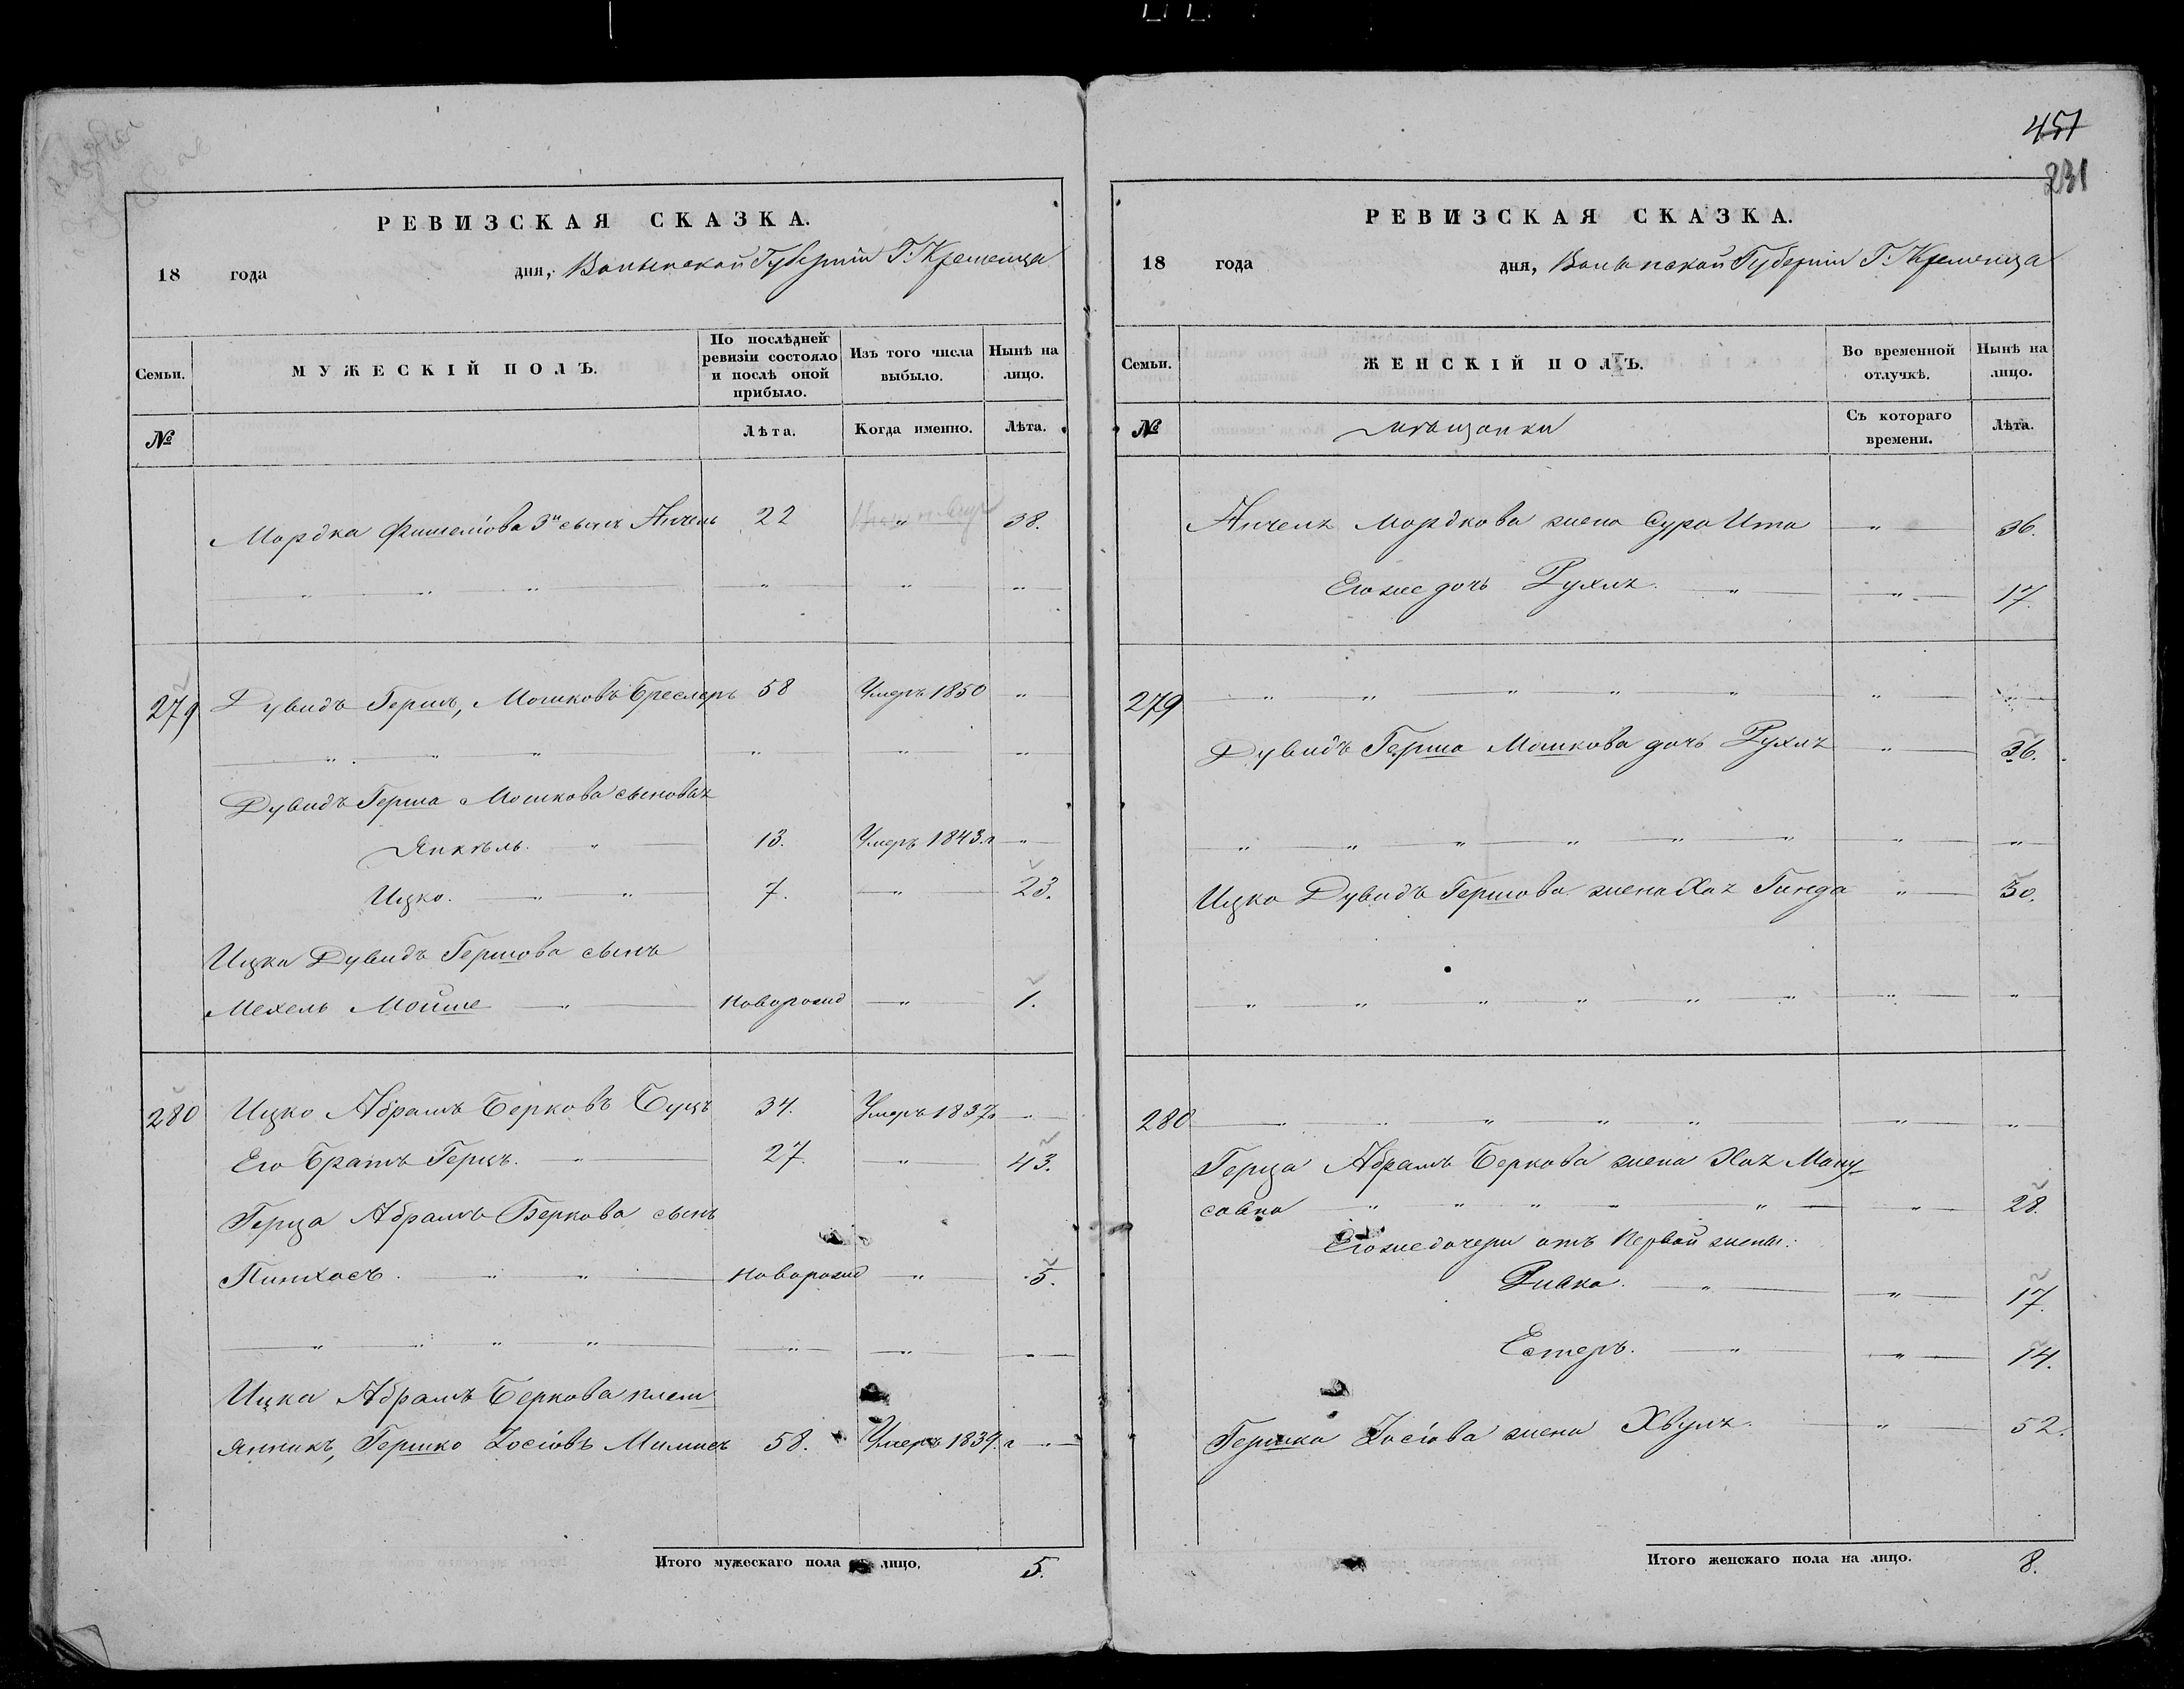 457
231
РЕВИЗСКАЯ СКАЗКА.
18 года дня, Волынской Губерніи Г. Кременца
Семьи. МУЖЕСКІЙ ПОЛЪ. По послѣдней ревизіи состояло и послѣ оной прибыло. Изъ того числа выбыло. Нынѣ на лицо.
№ Лѣта. Когда именно. Лѣта.
Мордка Фишеліова 3й сынъ Анчель 22 " 38.
" " " " " "
279 Дувидъ Гершъ, Мошковъ Бреслеръ 58 Умеръ 1850 "
" " " " " "
Дувидъ Герша Мошкова сыновья
Янкель. " 13. Умеръ 1843 г "
Ицко. " " 7. " 23.
Ицка Дувидъ Гершова сынъ
Мехель Мойше " новорожд " 1.
280 Ицко Абрамъ Берковъ Буцъ 34. Умеръ 1837 "
Его Братъ Герцъ. " 27. " 43.
Герца Абрамъ Беркова сынъ
Пинхасъ. " " новорожд " 5.
" " " " " " "
Ицка Абрамъ Беркова плем
янникъ, Гершко Іосіовъ 58. Умеръ 1834. г "
Итого мужескаго пола на лицо. 5.
РЕВИЗСКАЯ СКАЗКА.
18 года дня, Волынской Губерніи Г. Кременца
Семьи. ЖЕНСКІЙ ПОЛЪ. Во временной отлучкѣ. Нынѣ на лицо.
№ мѣщанки Съ котораго времени. Лѣта.
Анчеля Мордкова жена Сура Ита " 36.
Его же дочь Рухля. " " 17.
279 " " " " " " "
Дувидъ Герша Мошкова дочь Рухля " 36.
" " " " " " " "
Ицка Дувидъ Гершова жена Хая Гинда " 30.
" " " " " " " "
280 " " " " " " "
Герца Абрамъ Беркова жена Хая Ману
совна " " " " " " 28.
Его же дочери отъ первой жены:
Ривка. " " 17.
Естеръ. " " 14.
Гершка Іосіова жена Хвуля. " 52.
Итого женскаго пола на лицо. 8.